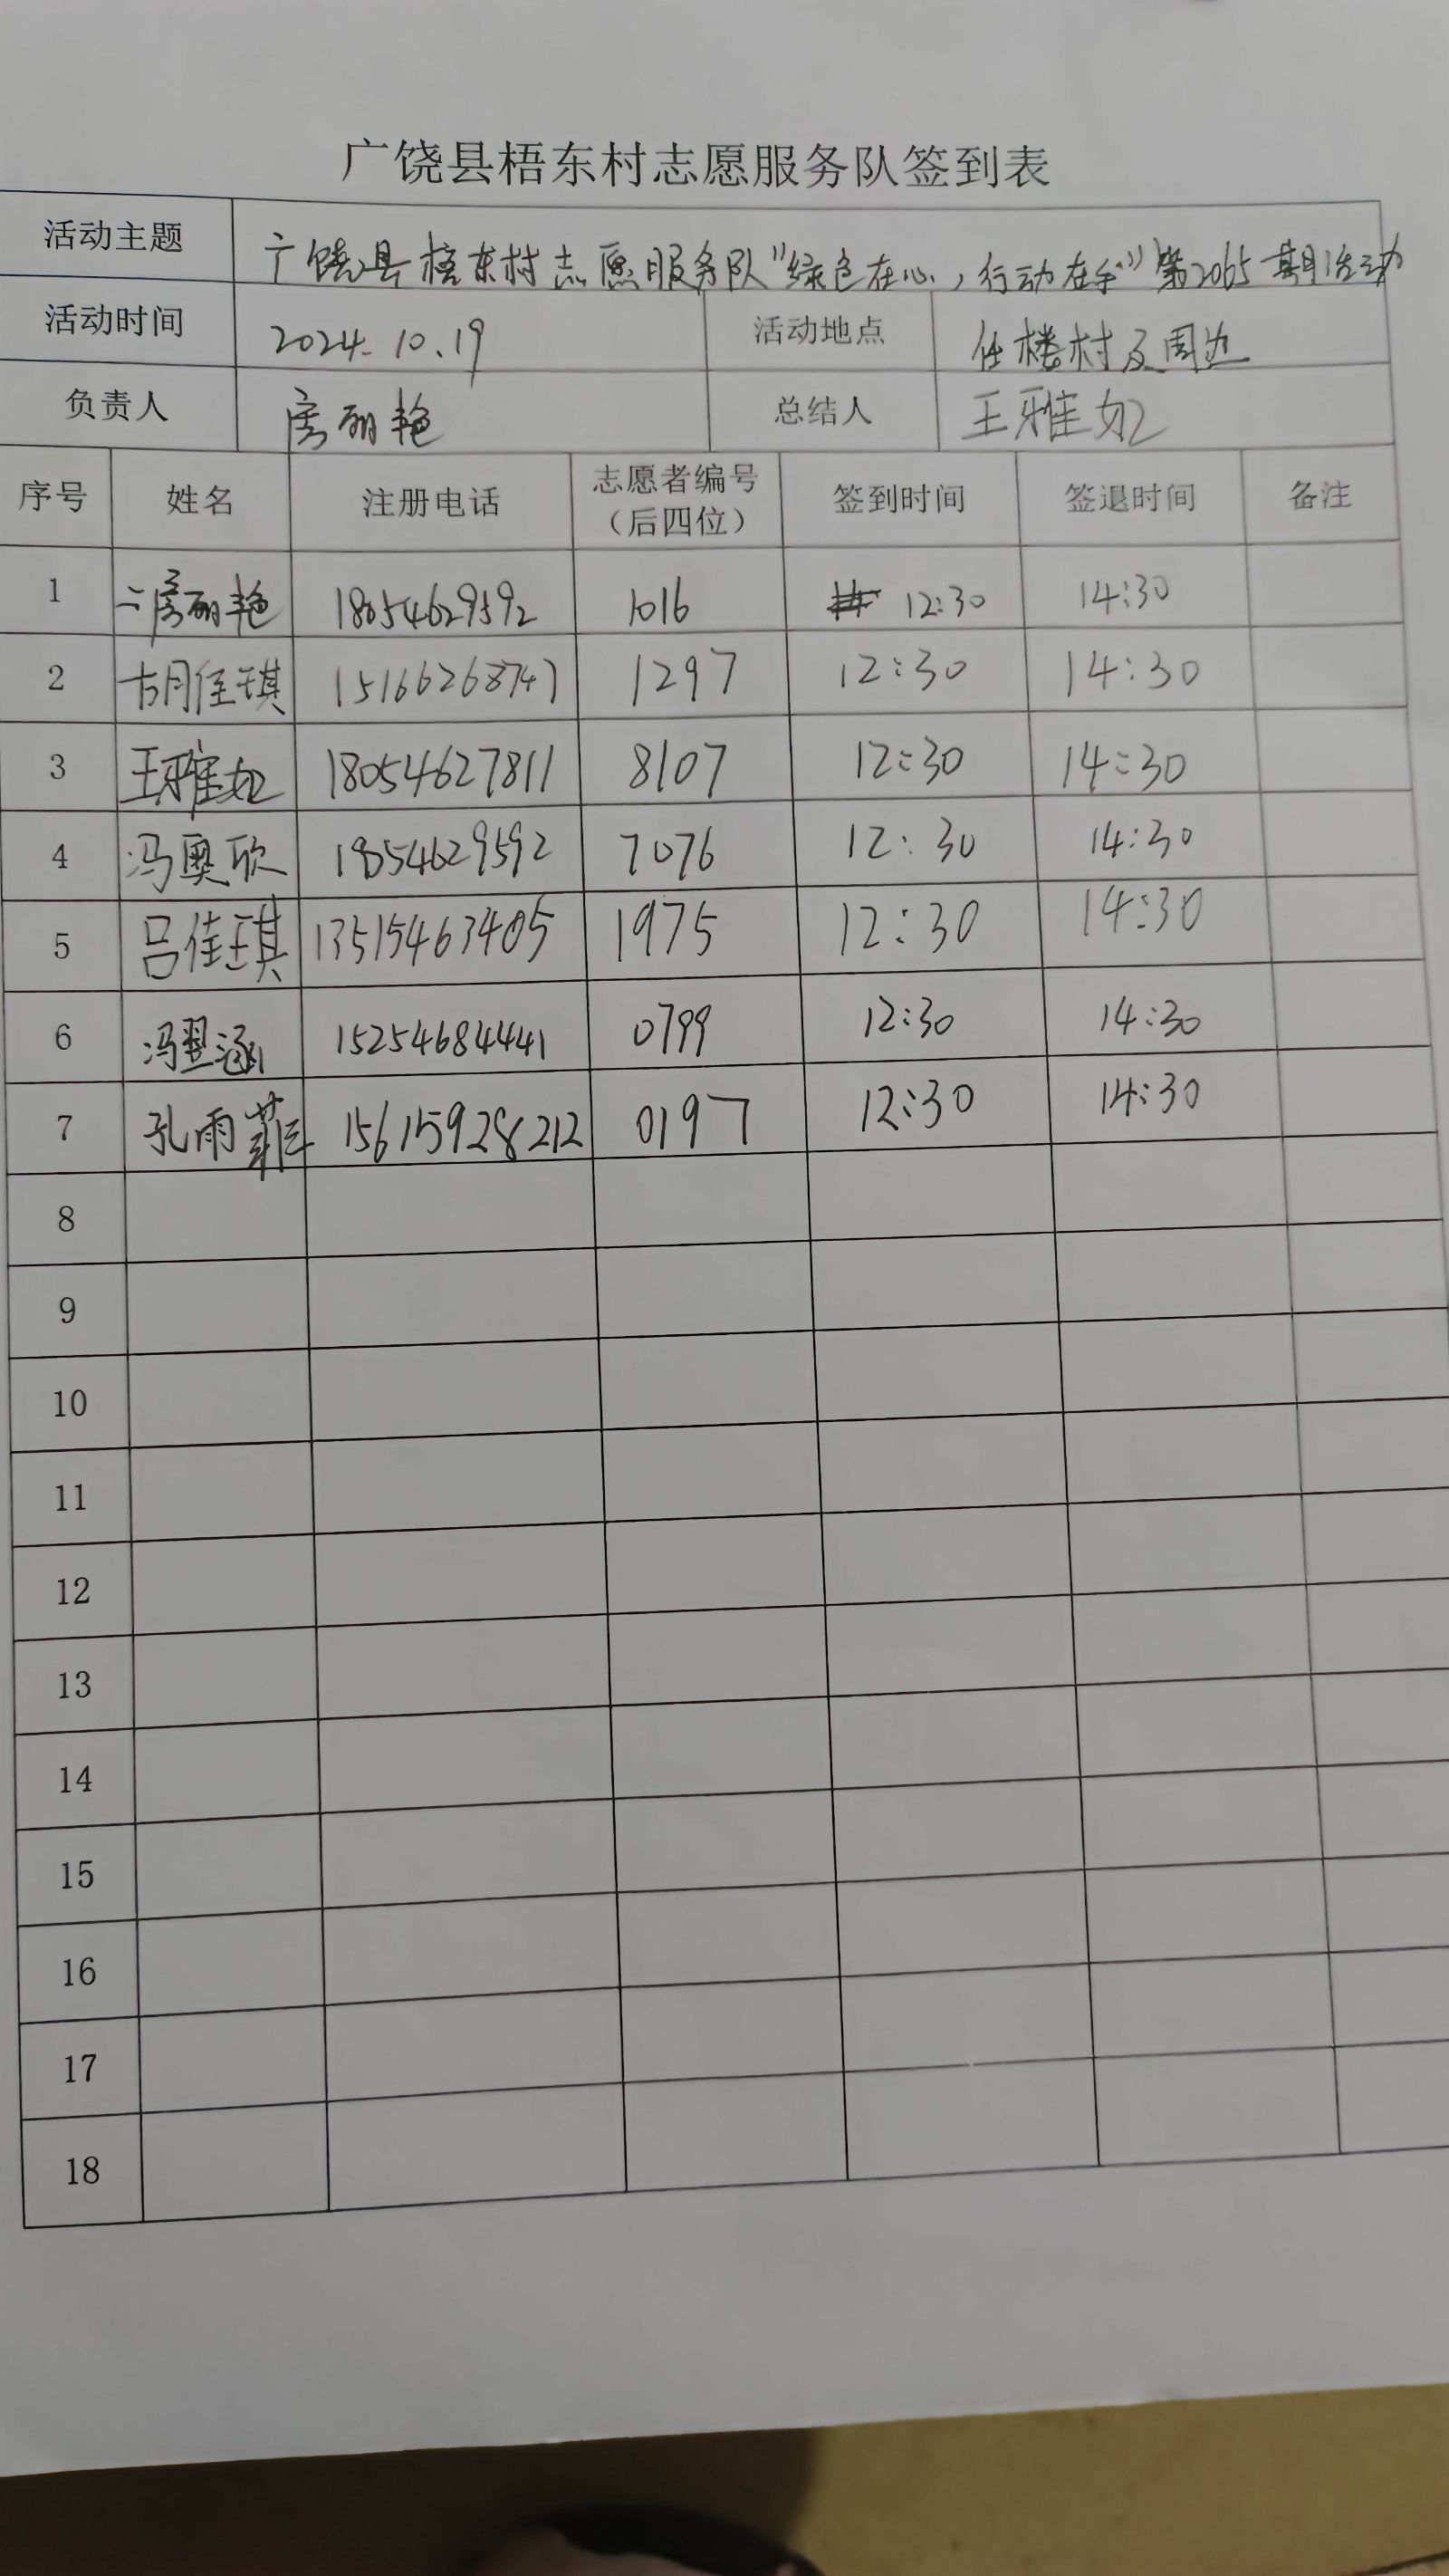 广饶县梧东村志愿服务队签到表
活动主题 广饶县梧东村志愿服务队“绿色在心，行动在手”第2065期活动
活动时间 2024.10.19 活动地点 任楼村及周边
负责人 房丽艳 总结人 王雅如
序号 姓名 注册电话 志愿者编号（后四位） 签到时间 签退时间 备注
1 房丽艳 18054629592 1016 12:30 14:30
2 胡佳琪 15166268747 1297 12:30 14:30
3 王雅如 18054627811 8107 12:30 14:30
4 冯奥欣 18054629592 7076 12:30 14:30
5 吕佳琪 13515463405 1975 12:30 14:30
6 冯翌涵 15254684441 0799 12:30 14:30
7 孔雨菲 15615928212 0197 12:30 14:30
8
9
10
11
12
13
14
15
16
17
18